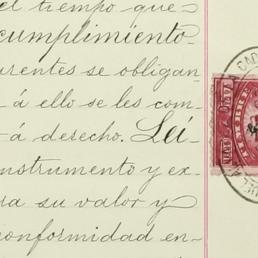 el tiempo que
cumplimiento
arentes se obligan
á ello se les com-
á derecho. Leí-
nstrumento y ex-
ra su valor y
conformidad en-